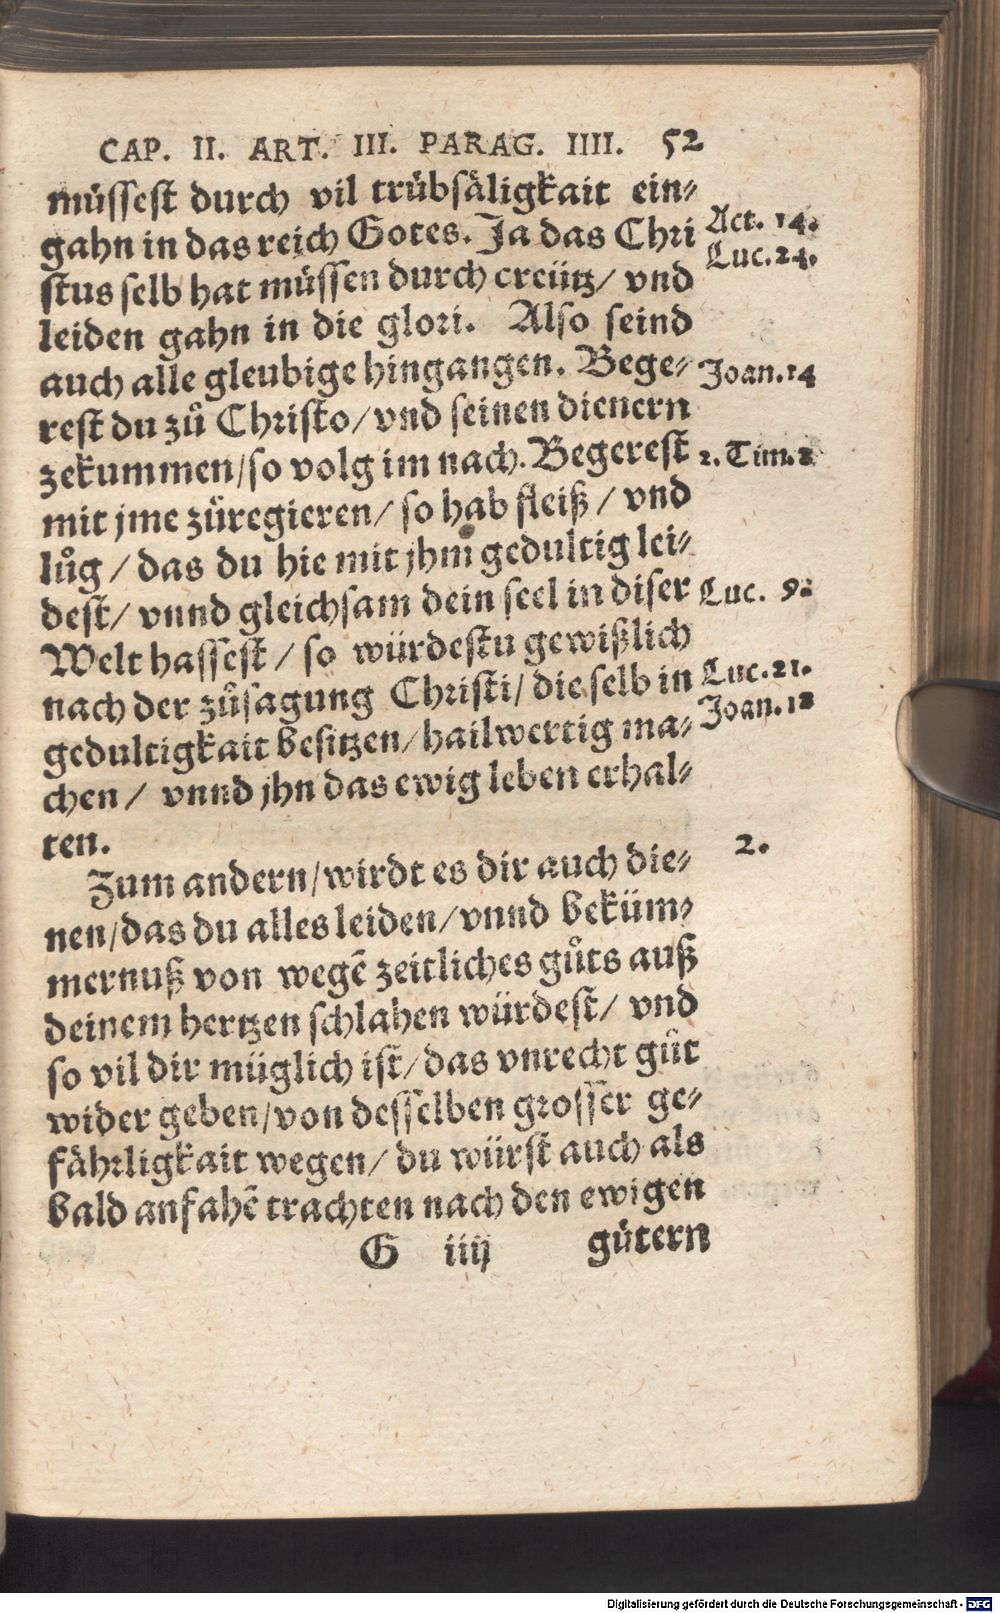 CAP. II. ART. III. PARAG. IIII. 52
müssest durch vil trübsäligkait ein-
gahn in das reich Gotes. Ja das Chri
stus selb hat müssen durch creütz/ vnd
leiden gahn in die glori. Also seind
auch alle gleubige hingangen. Bege-
rest du zů Christo/ vnd seinen dienern
zekummen/ so volg im nach. Begerest
mit jme züregieren/ so hab fleiß/ vnd
lůg/ das du hie mit jhm gedultig lei-
dest/ vnnd gleichsam dein seel in diser
Welt hassest/ so würdestu gewißlich
nach der zůsagung Christi/ die selb in
gedultigkait besitzen/ hailwertig ma-
chen/ vnnd jhn das ewig leben erhal-
ten.
Zum andern/ wirdt es dir auch die-
nen/ das du alles leiden/ vnnd beküm-
mernuß von wegē zeitliches gůts auß
deinem hertzen schlahen würdest/ vnd
so vil dir müglich ist/ das vnrecht gůt
wider geben/ von desselben grosser ge-
fährligkait wegen/ du würst auch als
bald anfahē trachten nach den ewigen
G iiij gütern
Act. 14.
Luc. 24.
Joan. 14
2. Tim. 2
Luc. 9.
Luc. 21.
Joan. 12
2.
Digitalisierung gefördert durch die Deutsche Forschungsgemeinschaft - DFG